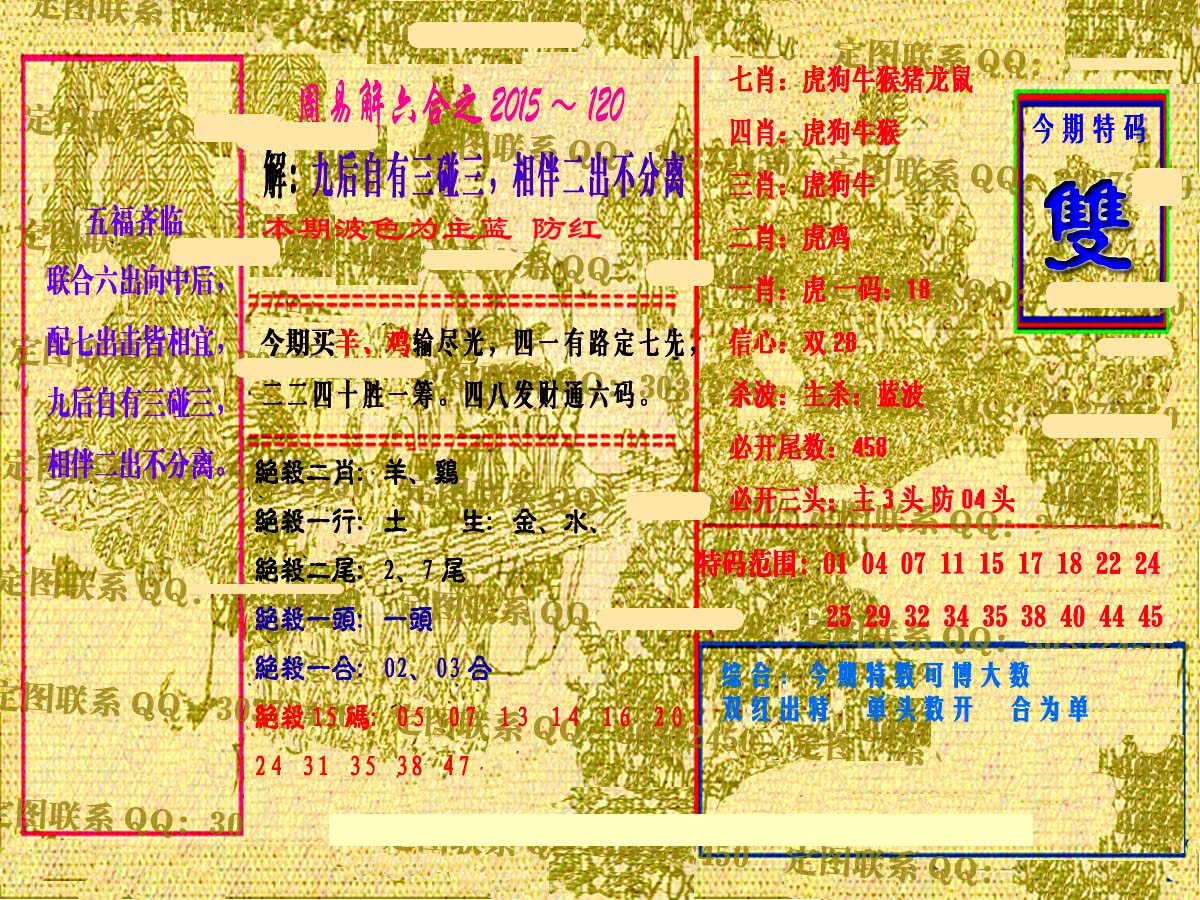 周易解六合之2015～120
解：九后自有三碰三，相伴二出不分离
本期波色为主蓝 防红
五福齐临
联合六出向中后，
配七出击皆相宜，
九后自有三碰三，
相伴二出不分离。
今期买羊、鸡输尽光，四一有路定七先，
二二四十胜一筹。四八发财通六码。
絕殺二肖：羊、鷄
絕殺一行：土 生：金、水、
絕殺二尾：2、7尾
絕殺一頭：一頭
絕殺一合：02、03合
絕殺15碼：05 07 13 14 16 20
24 31 35 38 47
七肖：虎狗牛猴猪龙鼠
四肖：虎狗牛猴
三肖：虎狗牛
二肖：虎鸡
一肖：虎一码：18
信心：双28
杀波：主杀：蓝波
必开尾数：458
必开三头：主3头防04头
今期特码
雙
特码范围：01 04 07 11 15 17 18 22 24
25 29 32 34 35 38 40 44 45
综合：今期特数可博大数
双红出特．单头数开 合为单
定图联系QQ：